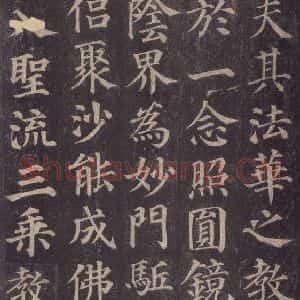 夫其法華之教
於一念照圓鏡
陰界為妙門駈
侶聚沙能成佛
入聖流三乘教
Shufawang.cn